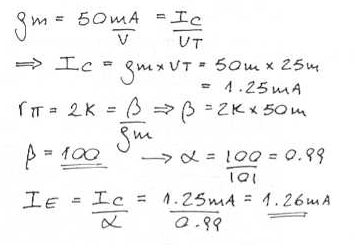 gm = 50mA/V = Ic/VT
⟹ Ic = gm×VT = 50m × 25m
= 1.25mA
rπ = 2K = β/gm ⟹ β = 2K×50m
β = 100 → α = 100/101 = 0.99
IE = Ic/α = 1.25mA/0.99 = 1.26mA